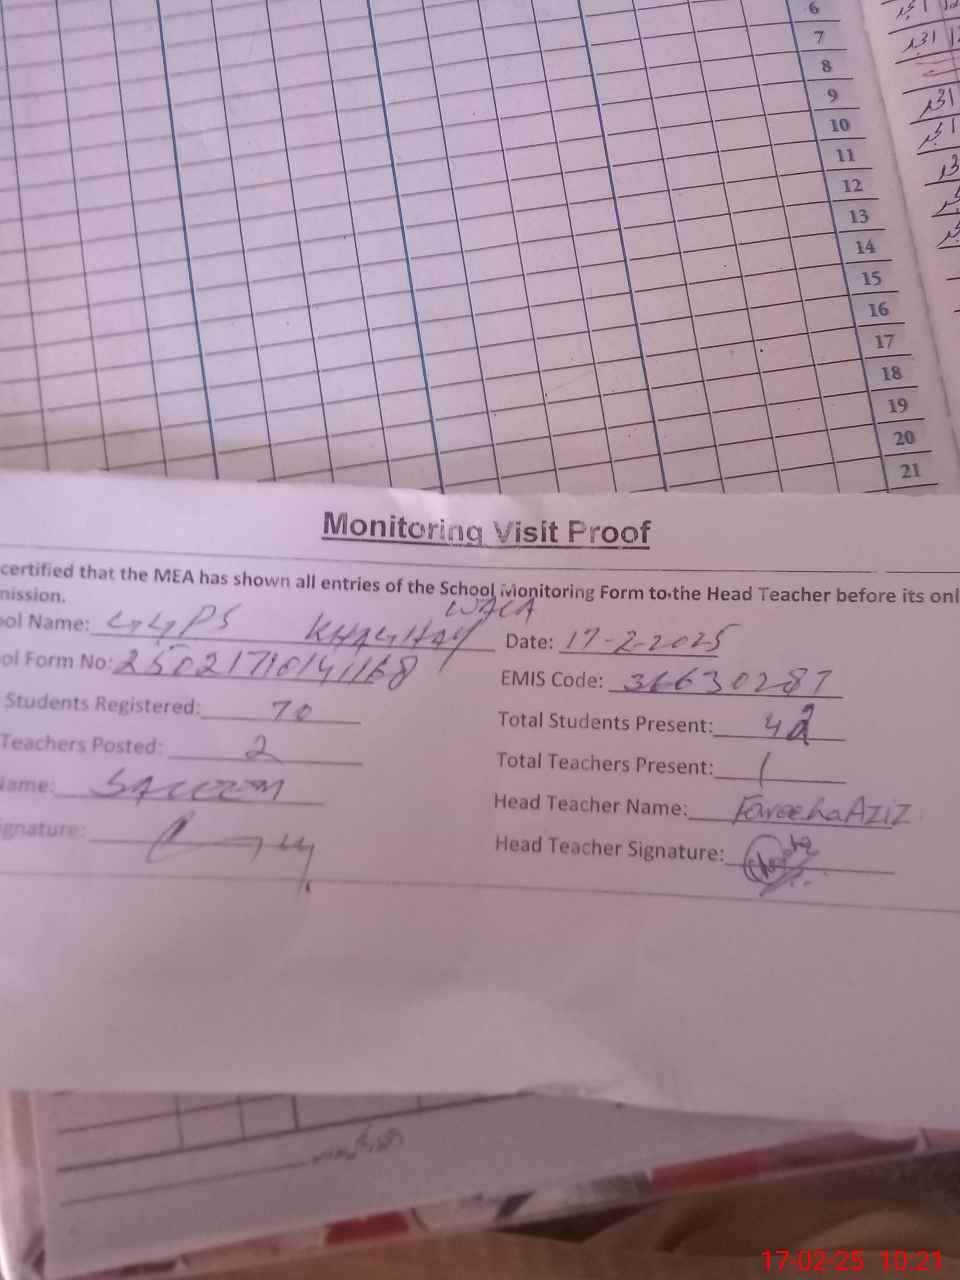 6
7
8
9
10
11
12
13
14
15
16
17
18
19
20
21
Monitoring Visit Proof
certified that the MEA has shown all entries of the School Monitoring Form to the Head Teacher before its onl
mission.
ool Name: GGPS KHAGHAY WALA Date: 17-2-2025
ol Form No: 25021710141168 EMIS Code: 36630287
Students Registered: 70 Total Students Present: 42
Teachers Posted: 2 Total Teachers Present: 1
Name: SALEEM Head Teacher Name: Fareeha AZIZ
ignature: Head Teacher Signature:
17-02-25 10:21